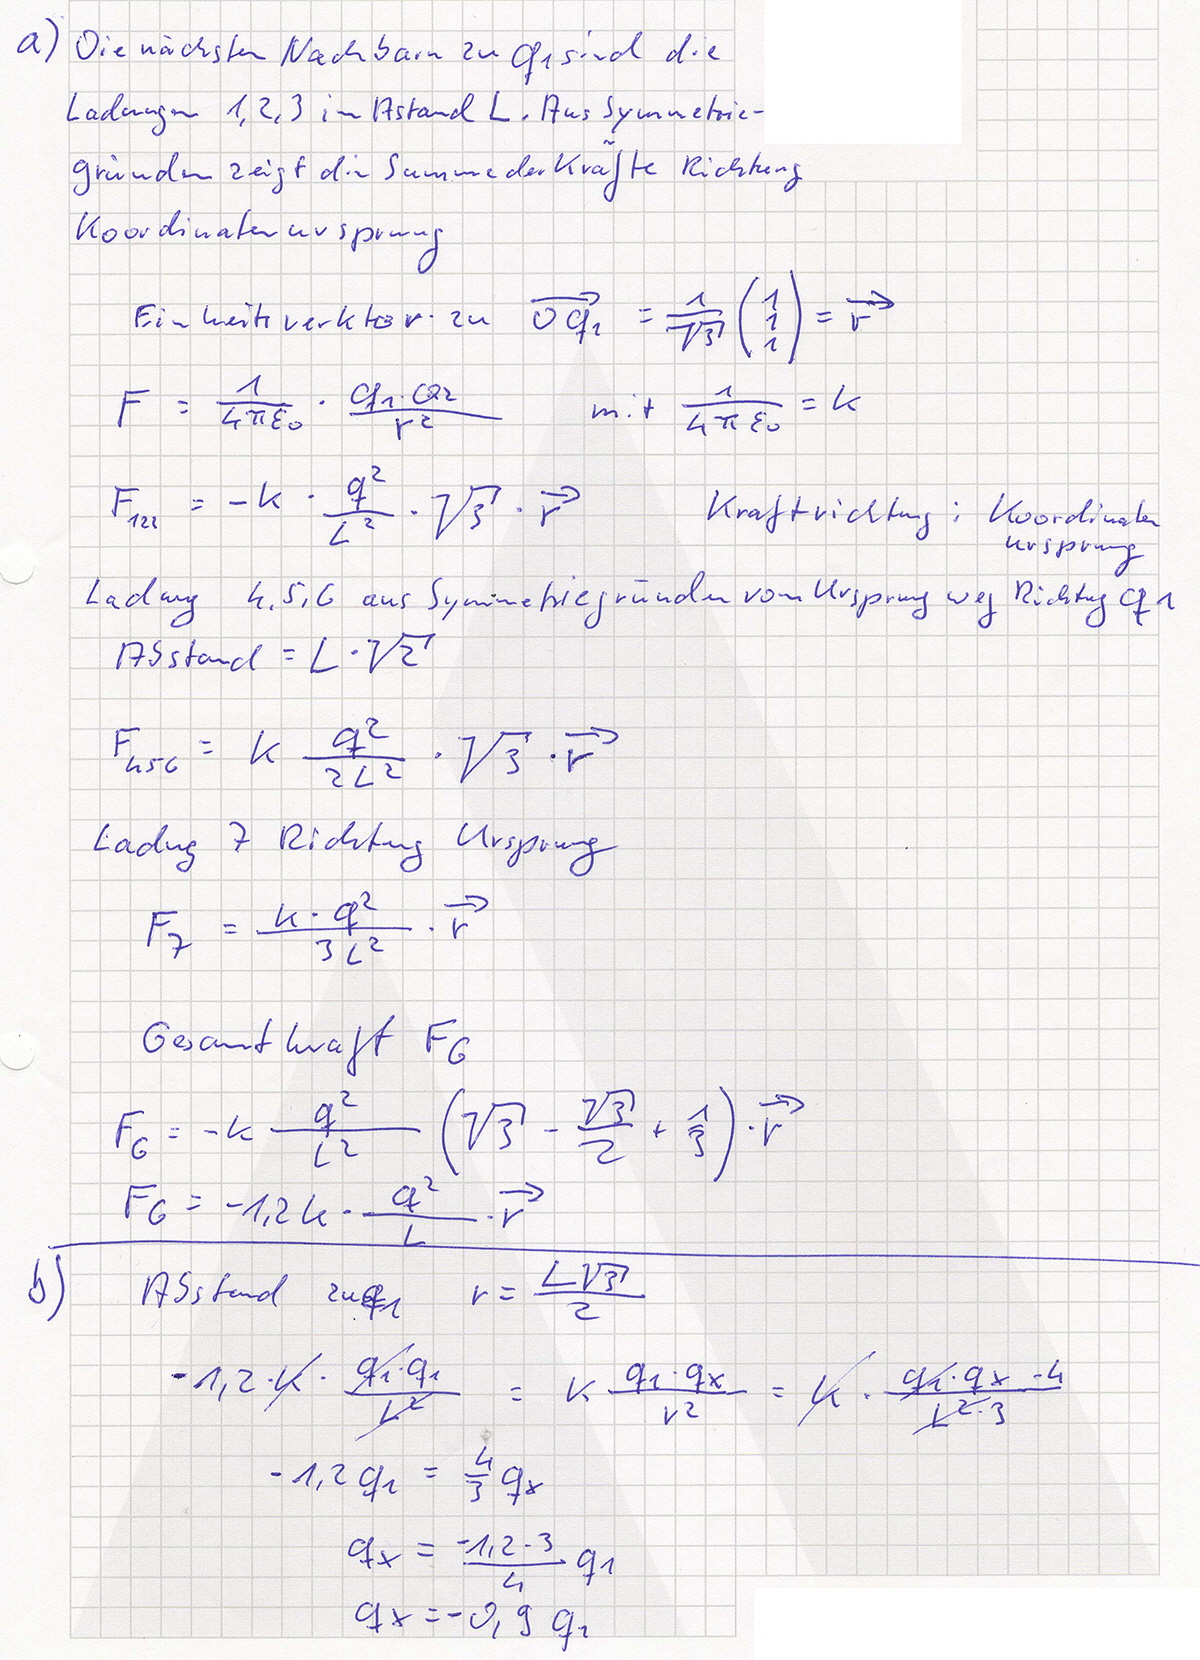 a) Die nächsten Nachbarn zu q₁ sind die
Ladungen 1,2,3 im Abstand L. Aus Symmetrie-
gründen zeigt die Summe der Kräfte Richtung
Koordinatenursprung
Einheitsverktor zu \overrightarrow{0q₁} = \frac{1}{\sqrt{3}} \begin{pmatrix} 1 \\ 1 \\ 1 \end{pmatrix} = \vec{r}
F = \frac{1}{4πε₀} · \frac{q₁·Q₂}{r²} mit \frac{1}{4πε₀} = k
F₁₂₂ = -k · \frac{q²}{L²} · \sqrt{3} · \vec{r} Kraftrichtung: Koordinaten
ursprung
Ladung 4,5,6 aus Symmetriegründen vom Ursprung weg Richtung q1
Abstand = L·\sqrt{2}
F₄₅₆ = k \frac{q²}{2L²} · \sqrt{3} · \vec{r}
Ladug 7 Richtung Ursprung
F₇ = \frac{k·q²}{3L²} · \vec{r}
Gesamtkraft F_G
F_G = -k \frac{q²}{L²} (\sqrt{3} - \frac{\sqrt{3}}{2} + \frac{1}{3}) · \vec{r}
F_G = -1,2k · \frac{q²}{L} · \vec{r}
b) Abstand zu q₁ r = \frac{L\sqrt{3}}{2}
-1,2·k · \frac{q₁·q₁}{L²} = k \frac{q₁·q_x}{r²} = k · \frac{q₁·q_x·4}{L²·3}
-1,2 q₁ = \frac{4}{3} q_x
q_x = \frac{-1,2·3}{4} q₁
q_x = -0,9 q₁